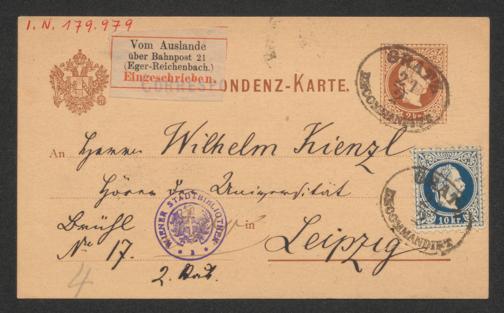 I. N. 179.979
Vom Auslande
über Bahnpost 21
(Eger-Reichenbach.)
Eingeschrieben.
CORRESPONDENZ-KARTE.
GRAZ
RECOMMANDIRT
An Herrn Wilhelm Kienzl
Hörer der Universität
Brühl in
No 17. Leipzig
WIENER STADTBIBLIOTHEK
GRAZ
RECOMMANDIRT
10 Kr.
4
2.